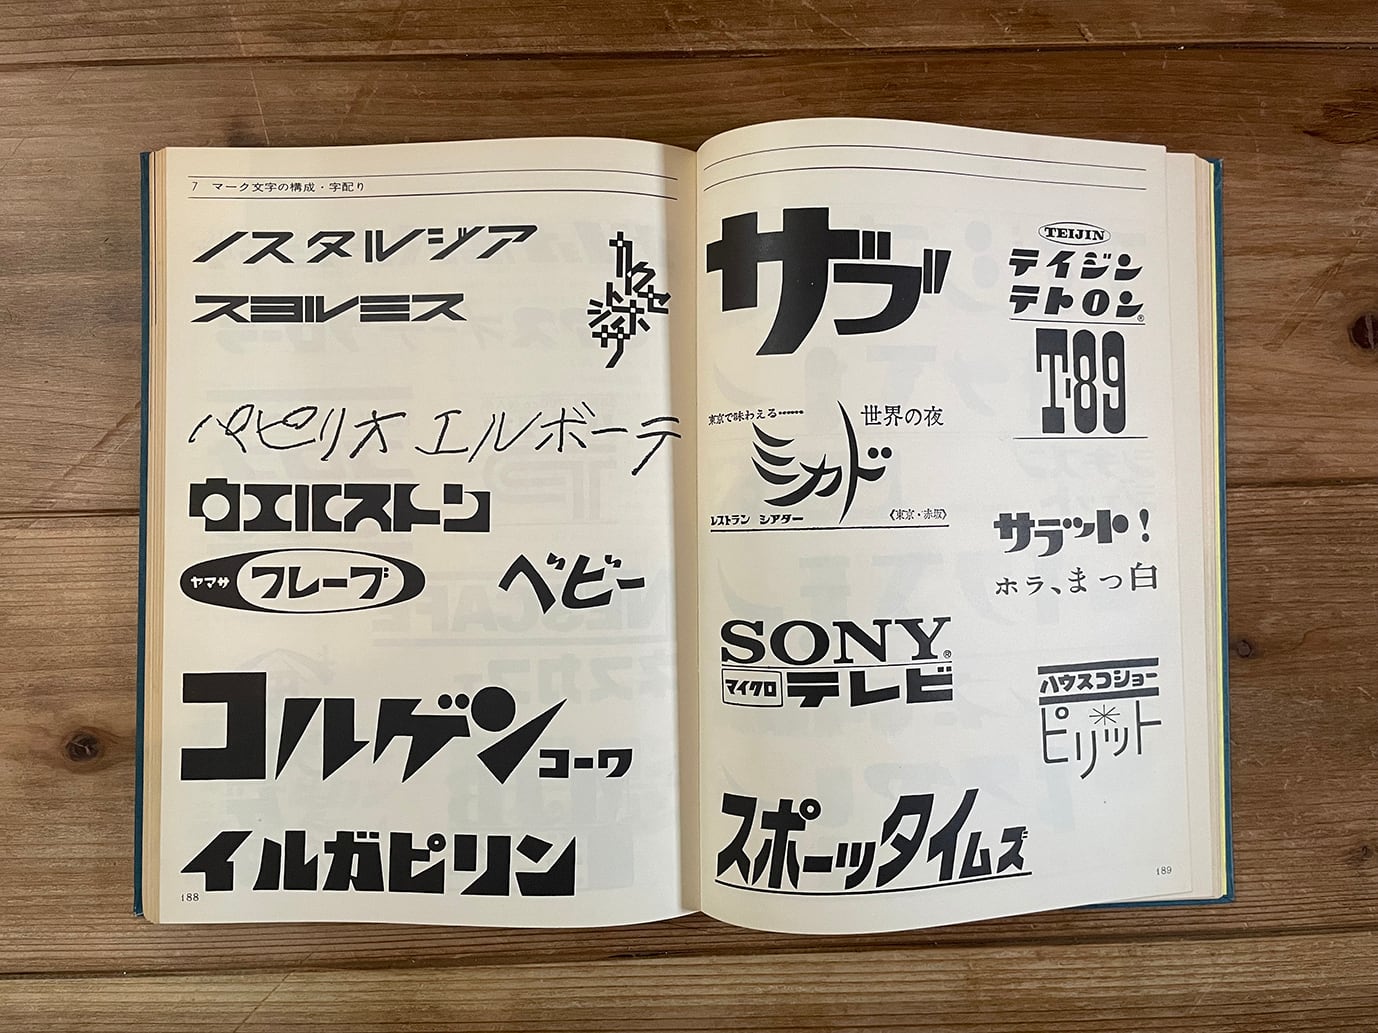 7 マーク文字の構成・字配り
ノスタルジア
スヨルミス
パピリオ エルボーテ
ウエルストン
ヤマサ
フレーブ
ベビー
コルゲン
コーワ
イルガピリン
188
サブ
TEIJIN
テイジン
テトロン®
T-89
東京で味わえる……
世界の夜
ミカド
レストラン シアター
《東京・赤坂》
サラット!
ホラ、まっ白
SONY®
マイクロ
テレビ
ハウスコショー
ピリット
スポーツタイムズ
189